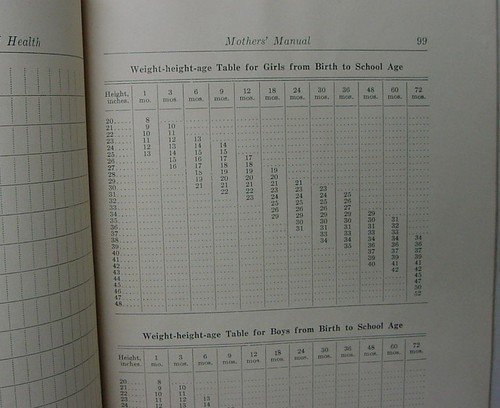 Health
Mothers' Manual 99
Weight-height-age Table for Girls from Birth to School Age
Height, inches. 1 mo. 3 mos. 6 mos. 9 mos. 12 mos. 18 mos. 24 mos. 30 mos. 36 mos. 48 mos. 60 mos. 72 mos.
20 8
21 9 10
22 10 11
23 11 12 13
24 12 13 14 14
25 13 14 15 15
26 15 16 17 17
27 16 17 18 18
28 18 19 19 19
29 19 20 20 20
30 21 21 21 21 21
31 22 22 23 23 23
32 23 24 24 24 25
33 25 25 25 26
34 26 26 26 27
35 29 29 29 29 29
36
37
38
39 34 34 34
40 36 36 36
41 37 37 37
42 39 39 39
43 40 41 41
44 42 42
45 45
46 47
47 50
48 52
Weight-height-age Table for Boys from Birth to School Age
Height, inches. 1 mo. 3 mos. 6 mos. 9 mos. 12 mos. 18 mos. 24 mos. 30 mos. 36 mos. 48 mos. 60 mos. 72 mos.
20 8
21 9 10
22 10 11
23 11 12 13
24 12 13 14